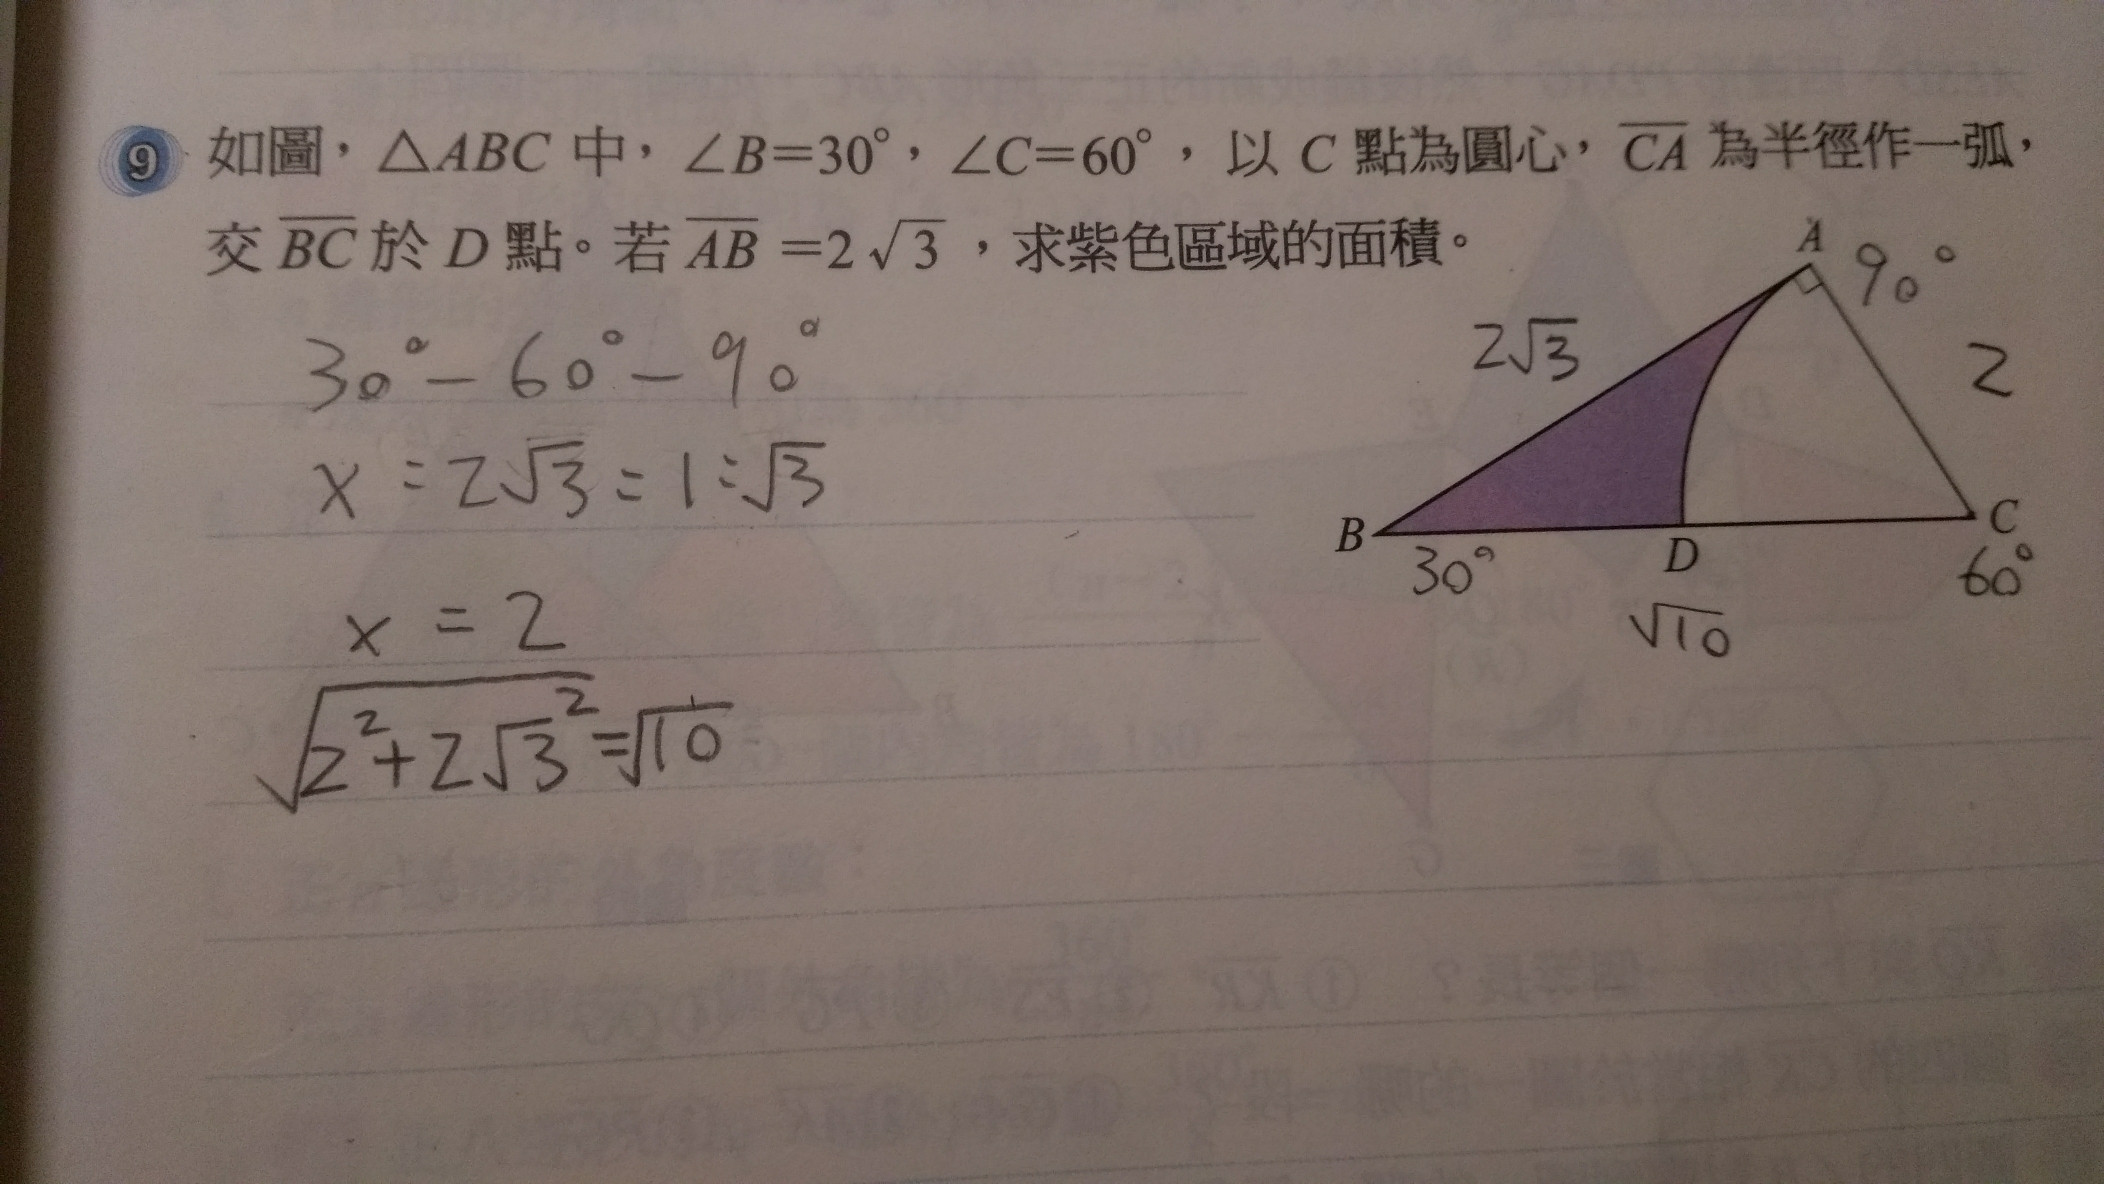 9 如圖，△ABC 中，∠B=30°，∠C=60°，以 C 點為圓心，CA 為半徑作一弧，
交 BC 於 D 點。若 AB =2√3，求紫色區域的面積。
30°-60°-90°
x:2√3=1:√3
x=2
√(2²+2√3²)=√10
A 90°
2√3
2
B
D
C
30°
60°
√10